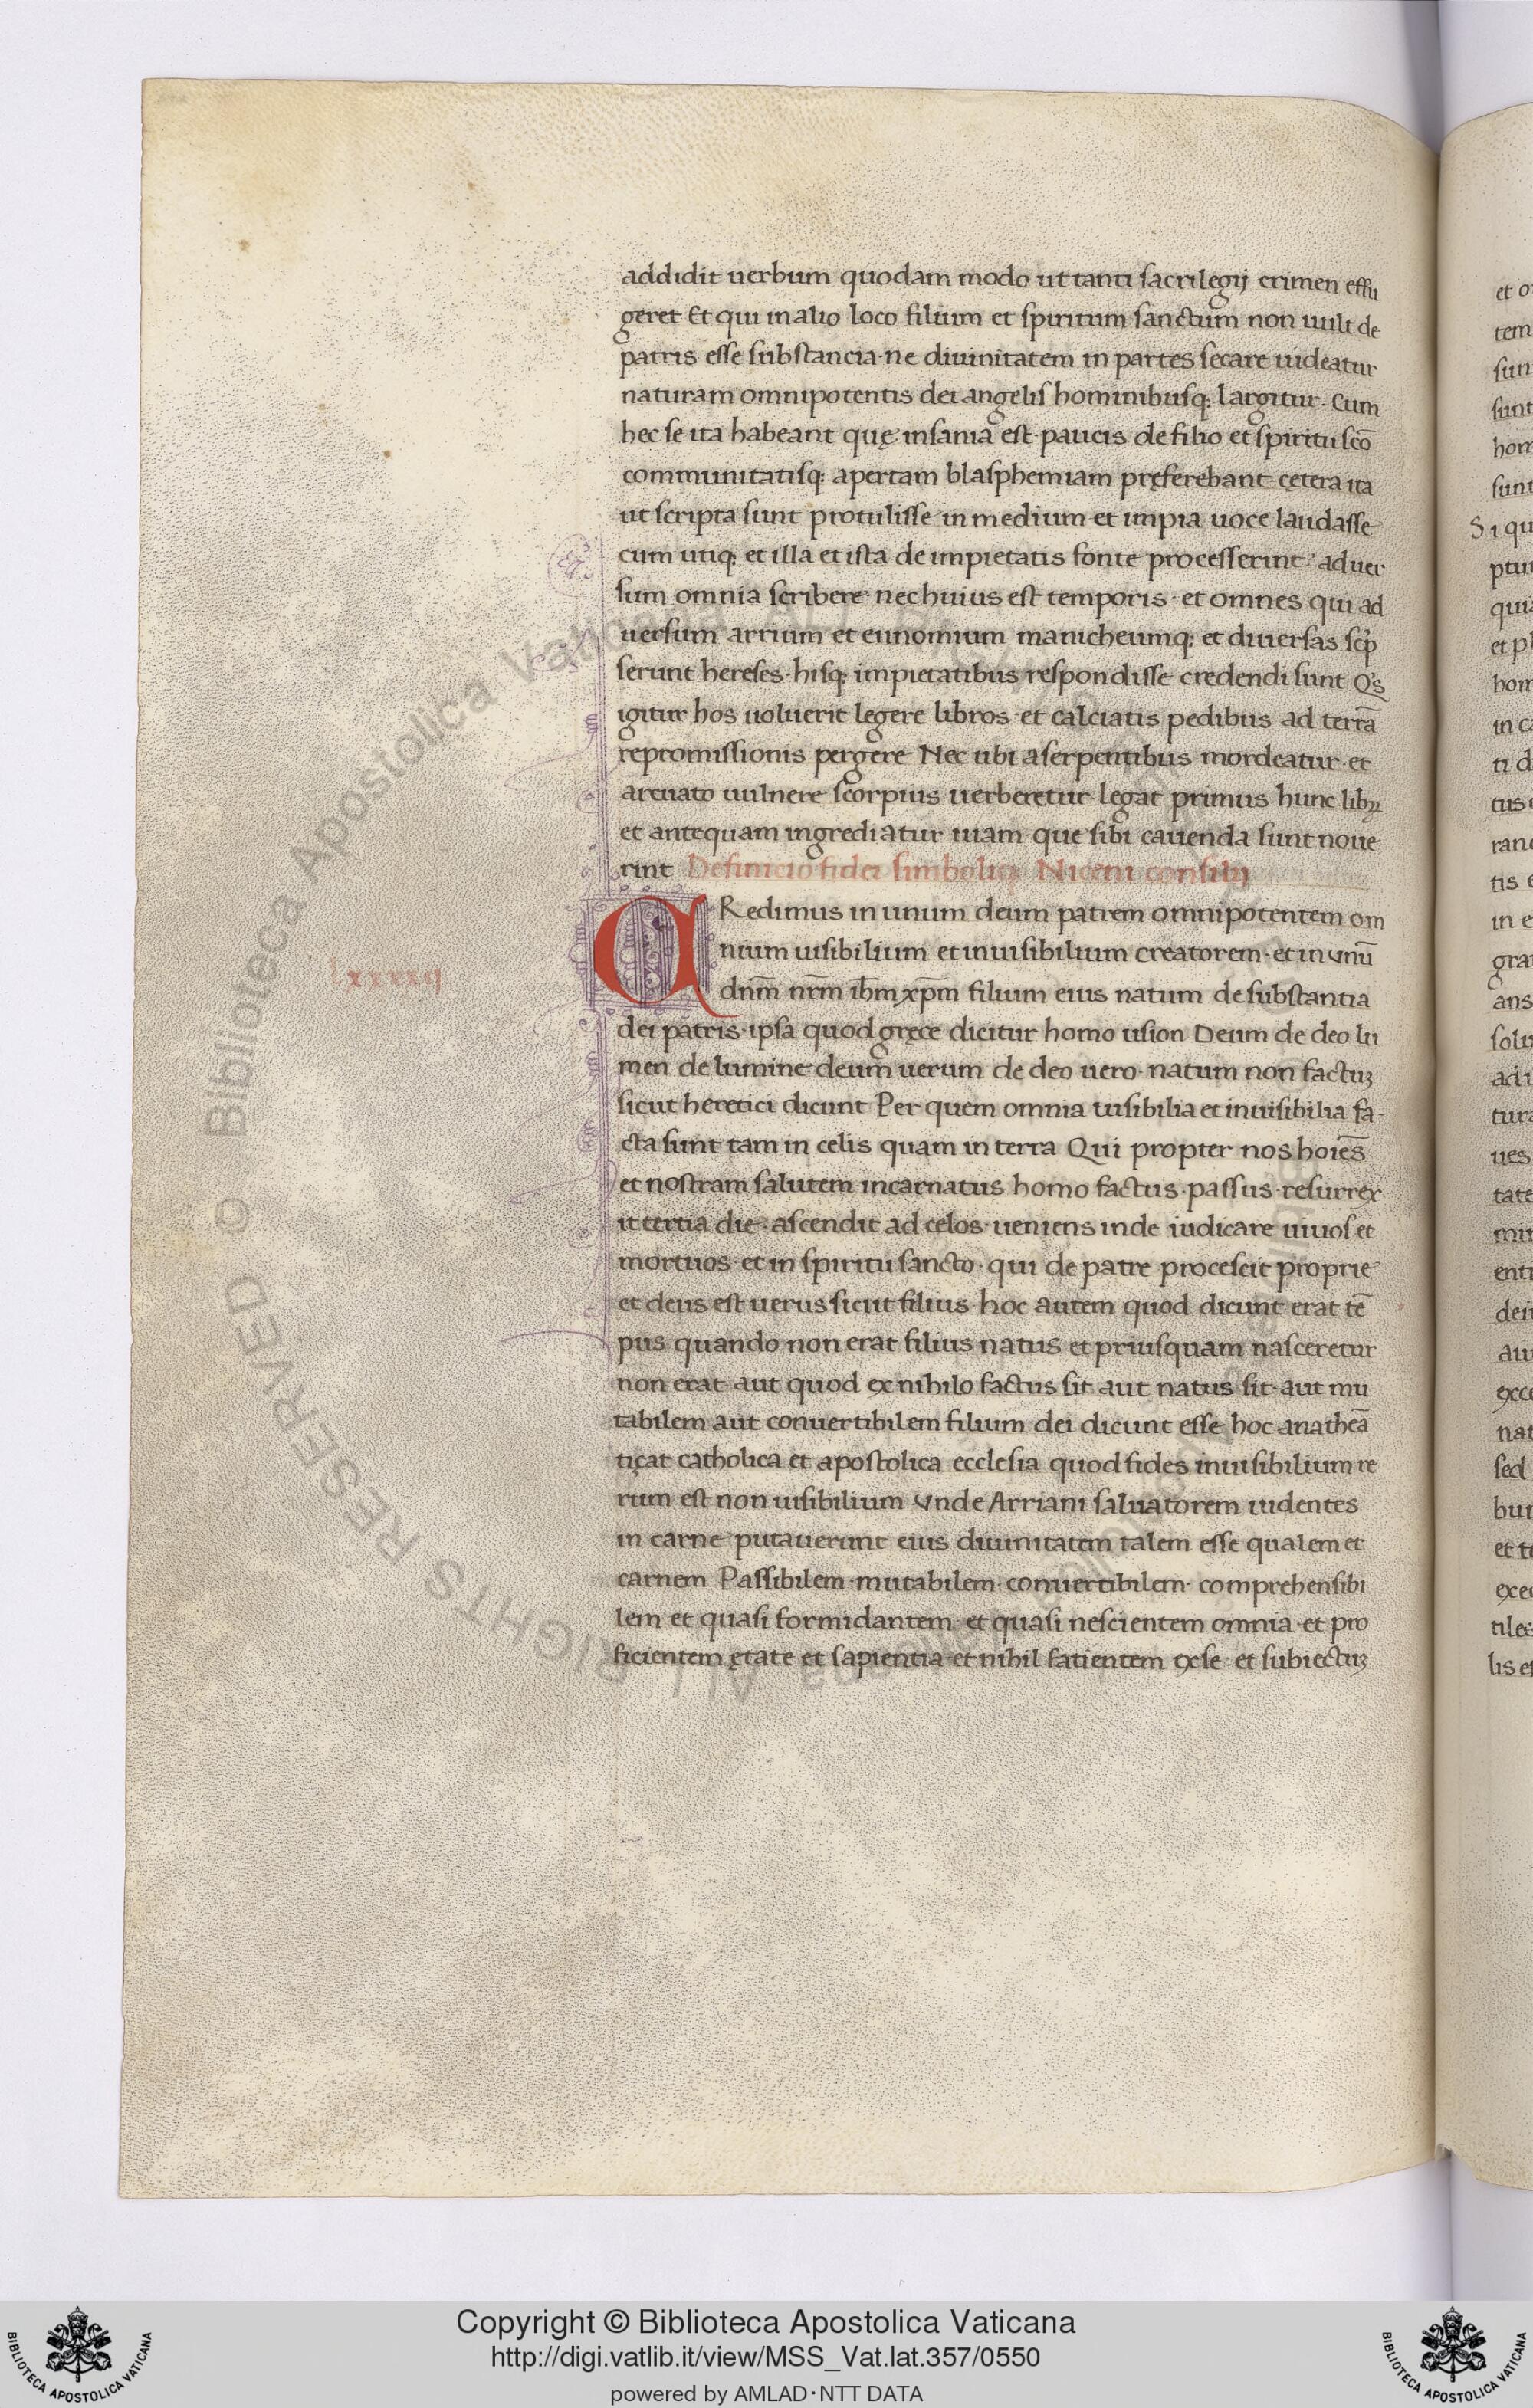 addidit uerbum quodam modo ut tanti sacrilegij crimen effu
geret Et qui in alio loco filium et spiritum sanctum non uult de
patris esse substancia· ne diuinitatem in partes secare uideatur
naturam omnipotentis dei angelis hominibusq; largitur· Cum
hec se ita habeant quę insania est· paucis de filio et spiritu scō
communitatisq; apertam blasphemiam pręferebant cętera ita
ut scripta sunt protulisse in medium et impia uoce laudasse
cum utiq; et illa et ista de impietatis fonte processerint· aduer
sum omnia scribere nec huius est temporis· et omnes qui ad
uersum arrium et eunomium manicheumq; et diuersas scp̄
serunt hereses· hisq; impietatibus respondisse credendi sunt Qis
igitur hos uoluerit legere libros et calciatis pedibus ad terrā
repromissionis pergere Nec ubi a serpentibus mordeatur et
arcuato uulnere scorpius uerberetur legat primus hunc libꝝ
et antequam ingrediatur uiam que sibi cauenda sunt noue
rint Definicio fidei simboliq; Niceni consilij
CRedimus in unum deum patrem omnipotentem om
nium uisibilium et inuisibilium creatorem· et in vnū
lxxxxij
dnm̄ nrm̄ ihm̄ xp̄m filium eius natum de substantia
dei patris· ipsa quod gręce dicitur homo usion Deum de deo lu
men de lumine deum uerum de deo uero· natum non factuꝫ
sicut heretici dicunt Per quem omnia uisibilia et inuisibilia fa-
cta sunt tam in celis quam in terra Qui propter nos hoiēs
et nostram salutem incarnatus homo factus· passus· resurrex
it tertia die· ascendit ad celos· ueniens inde iudicare uiuos et
mortuos· et in spiritu sancto· qui de patre procescit proprie
et deus est uerus sicut filius· hoc autem quod dicunt erat tē
pus quando non erat filius natus et priusquam nasceretur
non erat· aut quod ex nihilo factus sit aut natus sit· aut mu
tabilem aut conuertibilem filium dei dicunt esse hoc anatheā
tiçat catholica et apostolica ecclesia quod fides inuisibilium re
rum est non uisibilium vnde Arriani saluatorem uidentes
in carne putauerunt eius diuinitatem talem esse qualem et
carnem Passibilem· mutabilem· conuertibilem· comprehensibi
lem et quasi formidantem et quasi nescientem omnia· et pro
ficientem ętate et sapientia· et nihil fatientem ex se· et subiectuꝫ
© Biblioteca Apostolica Vaticana
ALL RIGHTS RESERVED
Copyright © Biblioteca Apostolica Vaticana
http://digi.vatlib.it/view/MSS_Vat.lat.357/0550
powered by AMLAD·NTT DATA
BIBLIOTECA APOSTOLICA VATICANA
BIBLIOTECA APOSTOLICA VATICANA